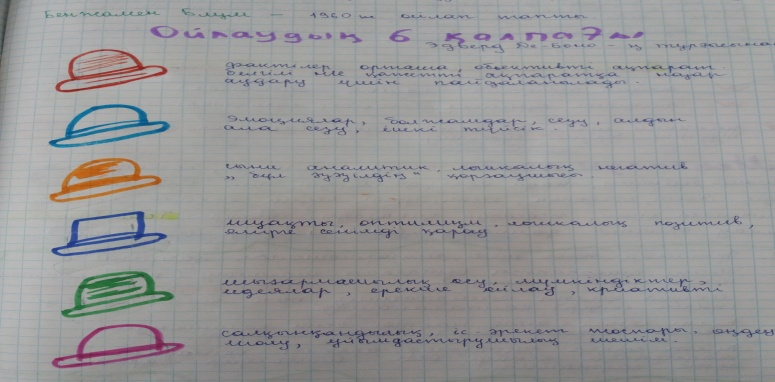 Бенжамен Блум – 1960ж ойлап тапты
Ойлаудың 6 қалпағы
Эдвард Де-Боно - ң тұрғысынан
фактілер орташа, объективті ақпарат.
білім ақпаратқа назар
аудару үшін пайдаланады.
Эмоциялар, болжамдар, сезу, алдын
ала сезу, ішкі түйсік.
сыни аналитик. логикалық негатив
„ бұл " қорғаушысы.
оптимизм. логикалық позитив,
өмірге сенімді қарау
шығармашылық өсу, мүмкіндіктер,
идеялар, ерекше ойлау, креативті
салқынқандылық, іс-әрекет жоспары. өңдеу
шолу, ұйымдастырушылық шешім.